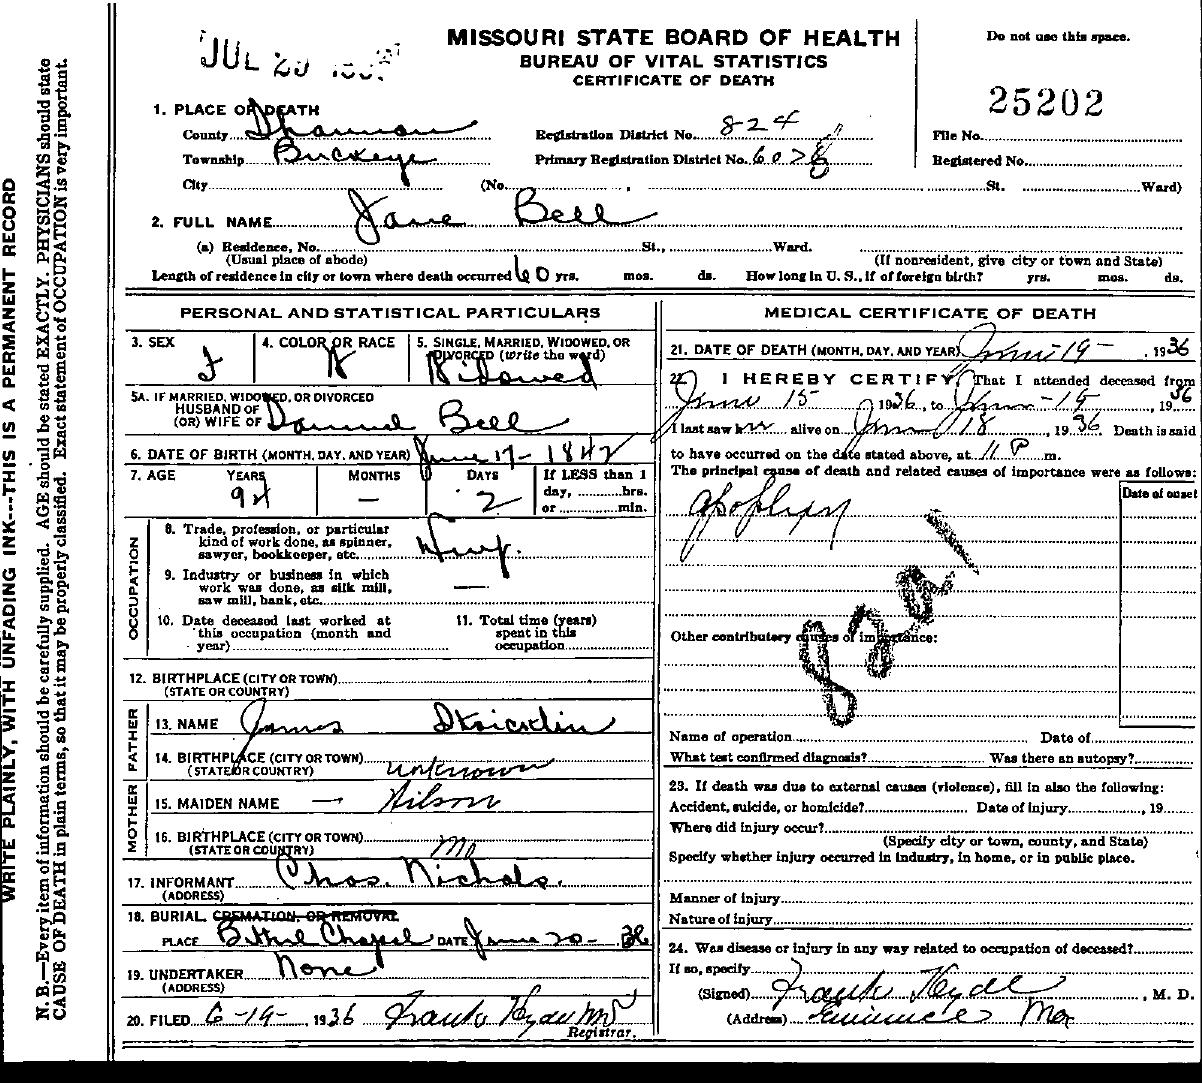 JUL 29
MISSOURI STATE BOARD OF HEALTH
BUREAU OF VITAL STATISTICS
CERTIFICATE OF DEATH
Do not use this space.
25202
1. PLACE OF DEATH
County Shannon
Township Buckeye
City (No. , St. Ward)
Registration District No. 824
Primary Registration District No. 6028
File No.
Registered No.
2. FULL NAME Jane Bell
(a) Residence, No. St., Ward.
(Usual place of abode) (If nonresident, give city or town and State)
Length of residence in city or town where death occurred 60 yrs. mos. ds. How long in U. S., if of foreign birth? yrs. mos. ds.
PERSONAL AND STATISTICAL PARTICULARS
3. SEX F
4. COLOR OR RACE W
5. SINGLE, MARRIED, WIDOWED, OR DIVORCED (write the word) Widowed
5A. IF MARRIED, WIDOWED, OR DIVORCED
HUSBAND OF
(OR) WIFE OF Samuel Bell
6. DATE OF BIRTH (MONTH, DAY, AND YEAR) June 17 - 1842
7. AGE YEARS MONTHS DAYS If LESS than 1
94 — 2 day, hrs.
or min.
OCCUPATION
8. Trade, profession, or particular
kind of work done, as spinner,
sawyer, bookkeeper, etc.
9. Industry or business in which
work was done, as silk mill,
saw mill, bank, etc. —
10. Date deceased last worked at
this occupation (month and
year)
11. Total time (years)
spent in this
occupation
12. BIRTHPLACE (CITY OR TOWN)
(STATE OR COUNTRY)
FATHER
13. NAME James Stricklin
14. BIRTHPLACE (CITY OR TOWN)
(STATE OR COUNTRY) unknown
MOTHER
15. MAIDEN NAME — Wilson
16. BIRTHPLACE (CITY OR TOWN)
(STATE OR COUNTRY) Mo
17. INFORMANT Chas. Nichols.
(ADDRESS)
18. BURIAL, CREMATION, OR REMOVAL
PLACE Bethel Chapel DATE June 20 - 36
19. UNDERTAKER None
(ADDRESS)
20. FILED 6-19-, 1936 Frank Hyde MD
Registrar.
MEDICAL CERTIFICATE OF DEATH
21. DATE OF DEATH (MONTH, DAY, AND YEAR) June 19 - , 1936
22. I HEREBY CERTIFY, That I attended deceased from
June 15 1936, to June - 19 , 1936
I last saw her alive on June 18 , 1936. Death is said
to have occurred on the date stated above, at 11 P m.
The principal cause of death and related causes of importance were as follows:
Date of onset
Apoplexy
82a
Other contributory causes of importance:
Name of operation Date of
What test confirmed diagnosis? Was there an autopsy?
23. If death was due to external causes (violence), fill in also the following:
Accident, suicide, or homicide? Date of injury , 19
Where did injury occur?
(Specify city or town, county, and State)
Specify whether injury occurred in industry, in home, or in public place.
Manner of injury
Nature of injury
24. Was disease or injury in any way related to occupation of deceased?
If so, specify
(Signed) Frank Hyde , M. D.
(Address) Eminence Mo
WRITE PLAINLY, WITH UNFADING INK---THIS IS A PERMANENT RECORD
N. B.—Every item of information should be carefully supplied. AGE should be stated EXACTLY. PHYSICIANS should state
CAUSE OF DEATH in plain terms, so that it may be properly classified. Exact statement of OCCUPATION is very important.